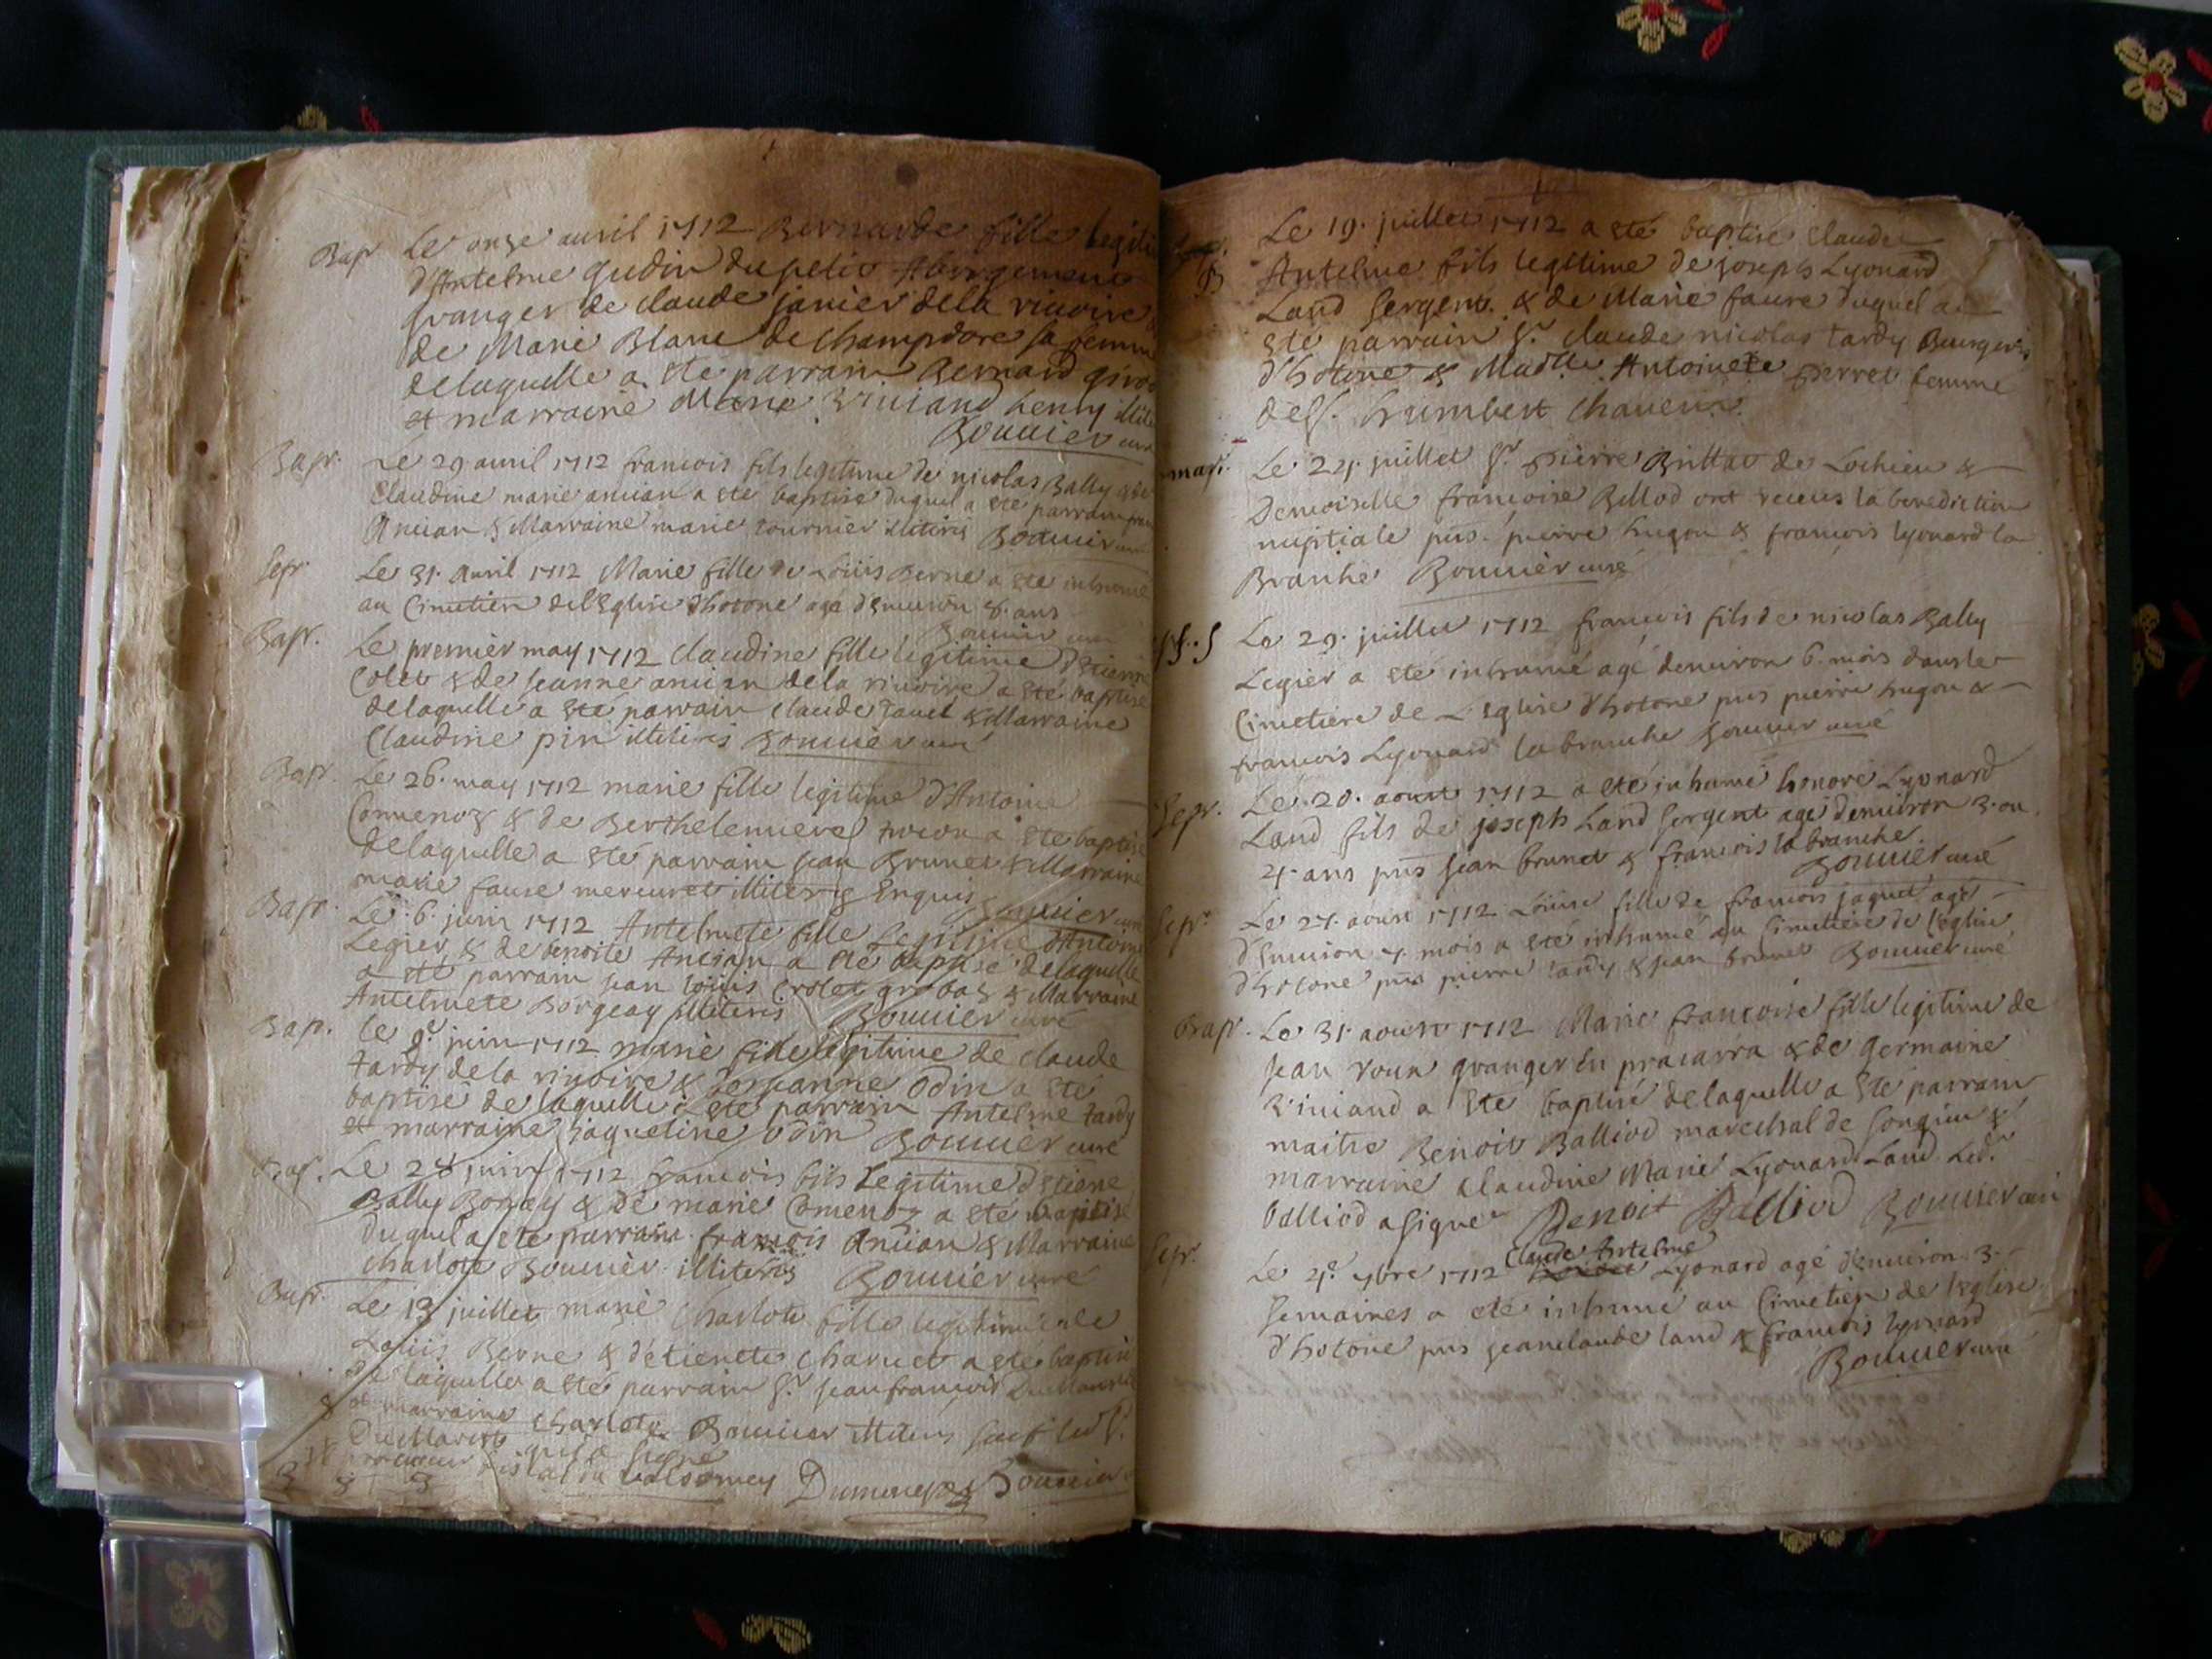 Bapt Le onze auril 1712 Bernarde fille legiti
d'Antelme Gudin du petit Abergement
granger de claude janier dela riuoire &
de Marie Blanc de Champdore sa femme
delaquelle a ete parrain Bernard girod
et marraine Marie Viuiand henry illite
Bouuier curé
Bapt. Le 29 auril 1712 francois fils legitime de nicolas Bally & de
Claudine marie ancian a ete baptise duquel a ete parrain fran
Ancian & Marraine marie tournier illiteris Bouuier curé
Sepr Le 31. auril 1712 Marie fille de Loüis Berne a ete inhumé
au Cimetiere del'Eglise d'hotone agé d'enuiron 8. ans
Bouuier curé
Bapt. Le premier may 1712 claudine fille legitime d'Etienne
Colet & de Jeanne ancian dela riuoire a eté baptisé
delaquelle a eté parrain claude Jauet & Marraine
Claudine pin illiteris Bouuier curé
Bapt. Le 26. may 1712 marie fille legitime d'Antoine
Comenoz & de Berthelemieve a eté baptisé
delaquelle a eté parrain Jean Brunet & Marraine
marie faure mercuret illiteris Enquis Bouuier curé
Bapt. Le 6. juin 1712 Antelmete fille legitime d'Antoine
Legier & de benoite Ancian a eté baptisé delaquelle
a eté parrain Jean loüis Crolet grobaz & Marraine
Antelmete Borgeay illiteris Bouuier curé
Bap. Le 9e juin 1712 marie fille legitime de claude
tardy de la riuoire & de Jeanne Odin a eté
baptisé de laquelle a eté parrain Antelme tardy
et marraine Jaqueline Odin Bouuier curé
Bap. Le 24 juin 1712 francois fils Legitime d'etiene
Bally Bozzey & de marie Comenoz a eté baptisé
duquel a ete parrain francois Ancian & Marraine
charlote Bouuier illiteris Bouuier curé
Bapt. Le 13 juillet marie Charlote fille legitime de
Loüis Berne & d'etienete charuet a eté baptisé
de laquelle a eté parrain Sr Jean francois Dumarest
& marraine charlote Bouuier illiteris sauf led Sr.
Dumarest qui a signé
procureur fiscal du valromey Dumarest Bouuier
B Le 19. juillet 1712 a eté baptisé claude
Antelme fils legitime de joseph Lyonard
Land sergent & de Marie faure duquel a
eté parrain Sr. claude nicolas tardy Bourgeois
d'hotone & Madlle Antoinete perret femme
de Sr. humbert chaueur
mari. Le 24. juillet Sr pierre Brittat de Lochieu &
Demoiselle francoise Billod ont receus la benediction
nuptiale pns. pierre hugon & francois lyonard la
Branche Bouuier curé
Le 29. juillet 1712 francois fils de nicolas Bally
Legier a eté inhumé agé denuiron 6. mois dans le
Cimetiere de L'Eglise d'hotone pns pierre hugon &
francois Lyonard la branche Bouuier curé
Sepr. Le 20. aoust 1712 a eté inhumé honoré Lyonard
Land fils de joseph Land sergent agé denuiron 3. ou
4. ans pns Jean brunet & francois la branche.
Bouuier curé
Sepr. Le 27. aoust 1712 Loüise fille de francois jaquet agé
d'Enuiron 4. mois a eté inhumé au Cimetiere de l'Eglise
d'hotone pns pierre tardy & Jean brunet Bouuier curé
Bapt. Le 31. aoust 1712 Marie francoise fille legitime de
Jean roux granger en pracarra & de germaine
Viuiand a eté baptisé delaquelle a eté parrain
maitre Benoit Balliod marechal de Songieu &
marraine claudine Marie Lyonard Land Led.
balliod a signer Benoit Balliod Bouuier curé
Claude Antelme
Sepr. Le 4e. 7bre 1712 Lyonard agé d'enuiron 3.
semaines a eté inhumé au Cimetiere de l'eglise
d'hotone pns jeanclaude land & francois lyonard
Bouuier curé